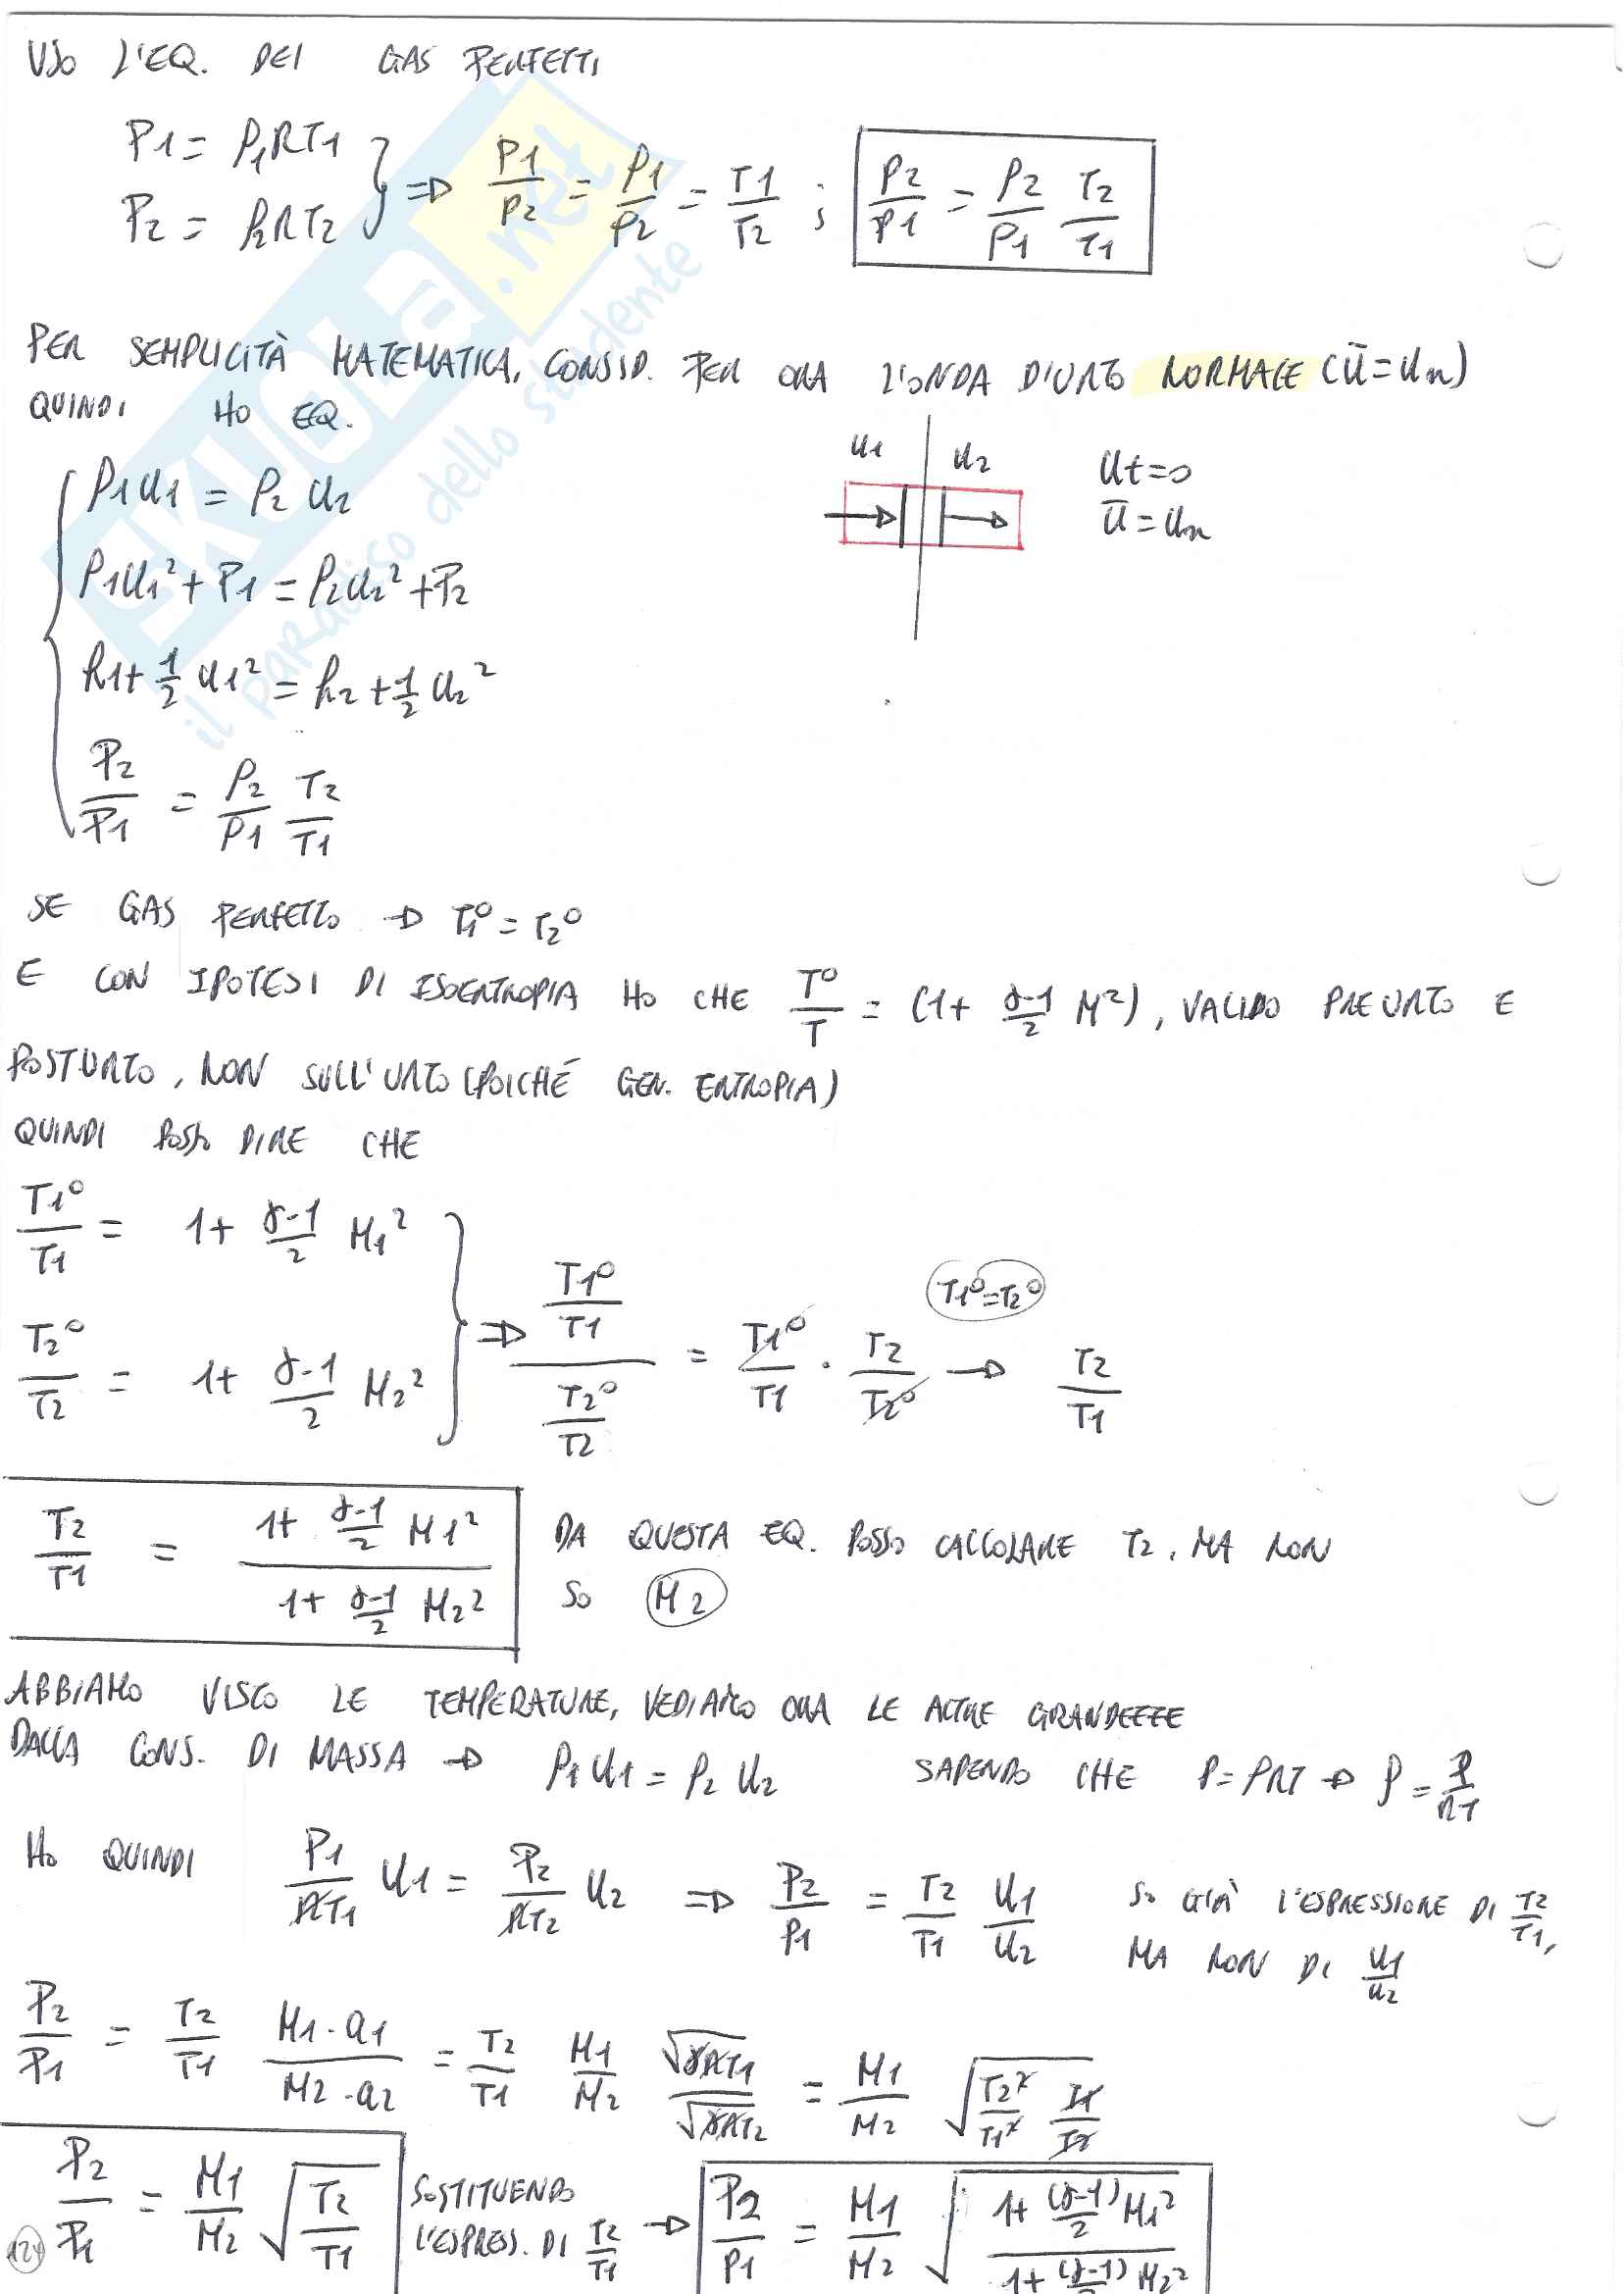 USO L'EQ. DEI GAS PERFETTI
P1 = ρ1RT1
P2 = ρ2RT2
} ⇒ P1/P2 = ρ1/ρ2 = T1/T2 ; P2/P1 = ρ2/ρ1 T2/T1
PER SEMPLICITÀ MATEMATICA, CONSID. PER ORA L'ONDA D'URTO NORMALE (ū = un)
QUINDI HO EQ.
u1 u2
ut = 0
ū = un
ρ1u1 = ρ2 u2
ρ1u1² + P1 = ρ2u2² + P2
h1 + 1/2 u1² = h2 + 1/2 u2²
P2/P1 = ρ2/ρ1 T2/T1
SE GAS PERFETTO → T1° = T2°
E CON IPOTESI DI ISOENTROPIA HO CHE T°/T = (1 + γ-1/2 M²), VALIDO PREURTO E
POSTURTO, NON SULL'URTO (POICHÉ GEN. ENTROPIA)
QUINDI POSSO DIRE CHE
T1°/T1 = 1 + γ-1/2 M1²
T2°/T2 = 1 + γ-1/2 M2²
} ⇒ T1°/T1 / T2°/T2 = T1°/T1 · T2/T2° → T2/T1
T1° = T2°
T2/T1 = 1 + γ-1/2 M1² / 1 + γ-1/2 M2²
DA QUESTA EQ. POSSO CALCOLARE T2, MA NON
SO M2
ABBIAMO VISTO LE TEMPERATURE, VEDIAMO ORA LE ALTRE GRANDEZZE
DALLA CONS. DI MASSA → ρ1 u1 = ρ2 u2 SAPENDO CHE P = ρRT → ρ = P/RT
HO QUINDI P1/RT1 u1 = P2/RT2 u2 ⇒ P2/P1 = T2/T1 u1/u2 SO GIÀ L'ESPRESSIONE DI T2/T1,
MA NON DI u1/u2
P2/P1 = T2/T1 M1·a1/M2·a2 = T2/T1 M1/M2 √γRT1/√γRT2 = M1/M2 √T2²/T1² T1/T2
P2/P1 = M1/M2 √T2/T1 SOSTITUENDO
L'ESPRESS. DI T2/T1 → P2/P1 = M1/M2 √1 + (γ-1)/2 M1² / 1 + (γ-1)/2 M2²
SKUOLA.net
il paradiso dello studente